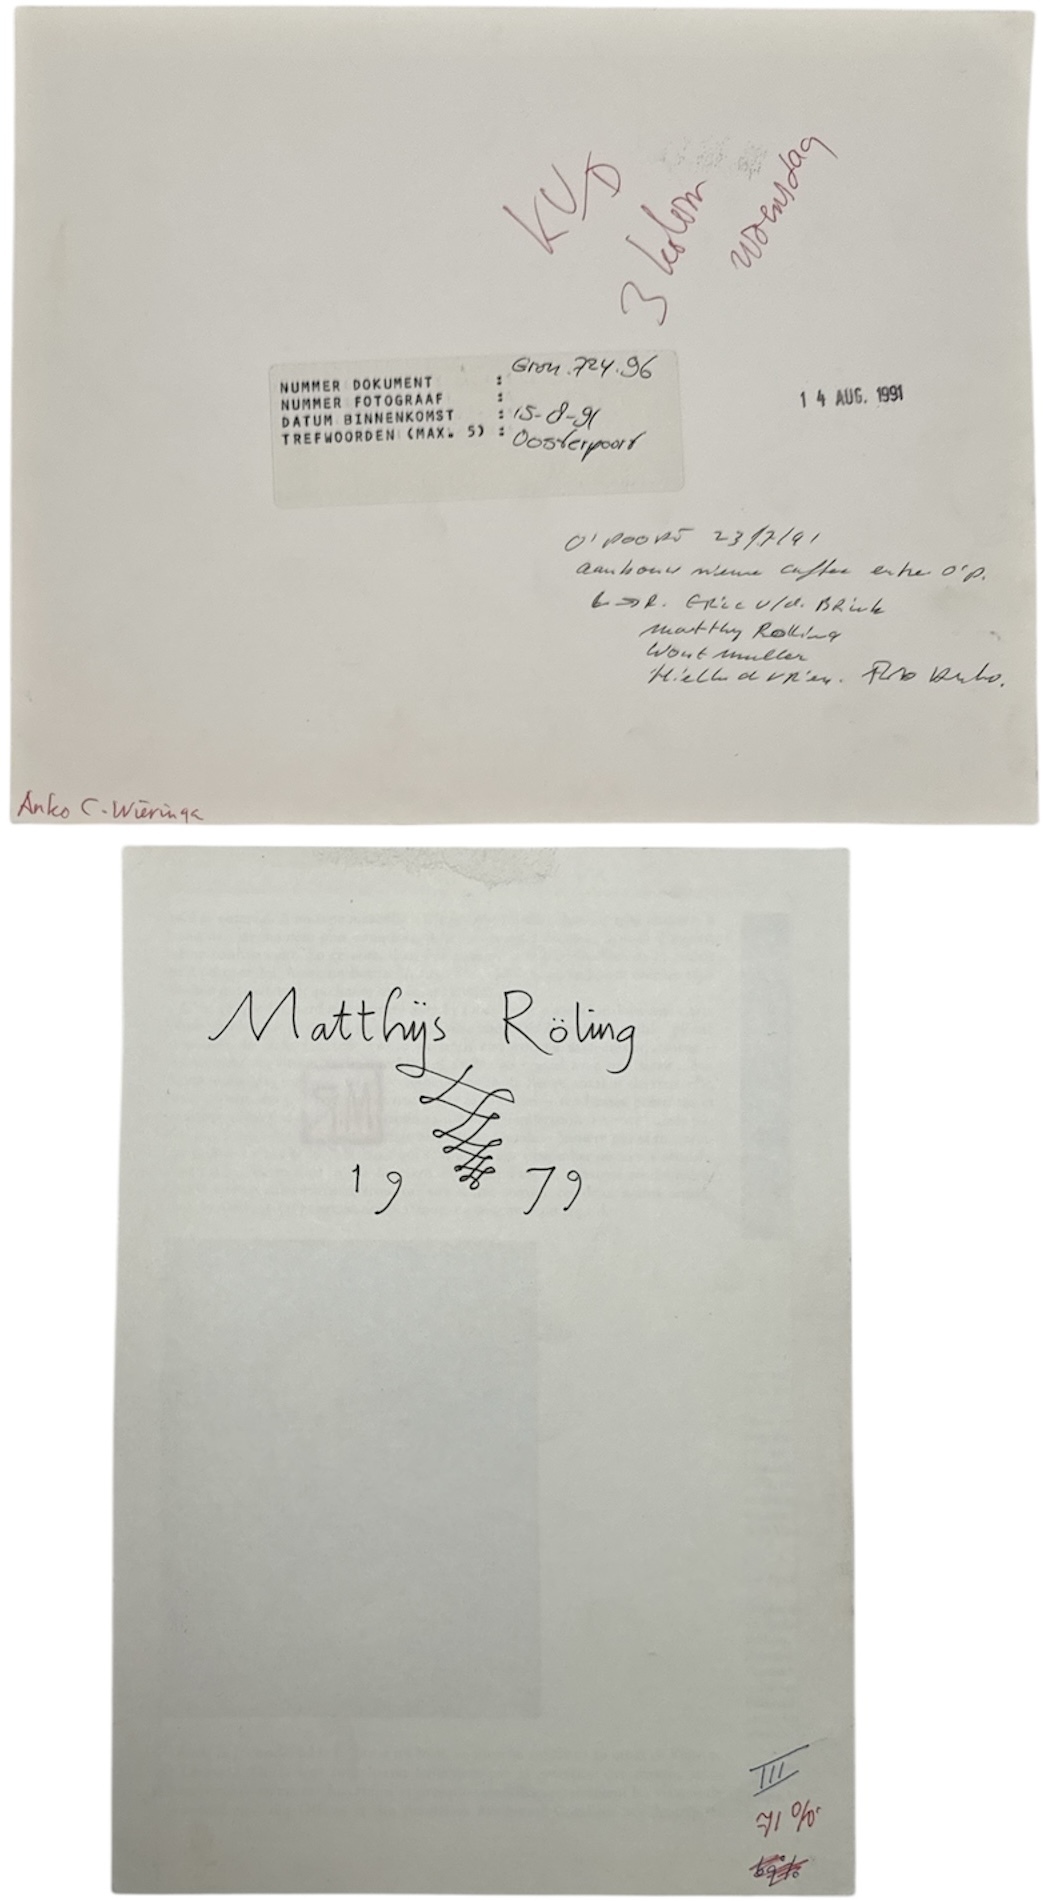 KVD
3 kolom
woensdag
NUMMER DOKUMENT : Gron.724.96
NUMMER FOTOGRAAF :
DATUM BINNENKOMST : 15-8-91
TREFWOORDEN (MAX. 5) : Oosterpoort
14 AUG. 1991
O'poort 23/7/91
aanbouw nieuwe entre O'P.
L→R. Eric v/d. Brink
Matthy Rolling
Wout Muller
Anko C. Wieringa
Matthijs Röling
1979
MR
III
71%